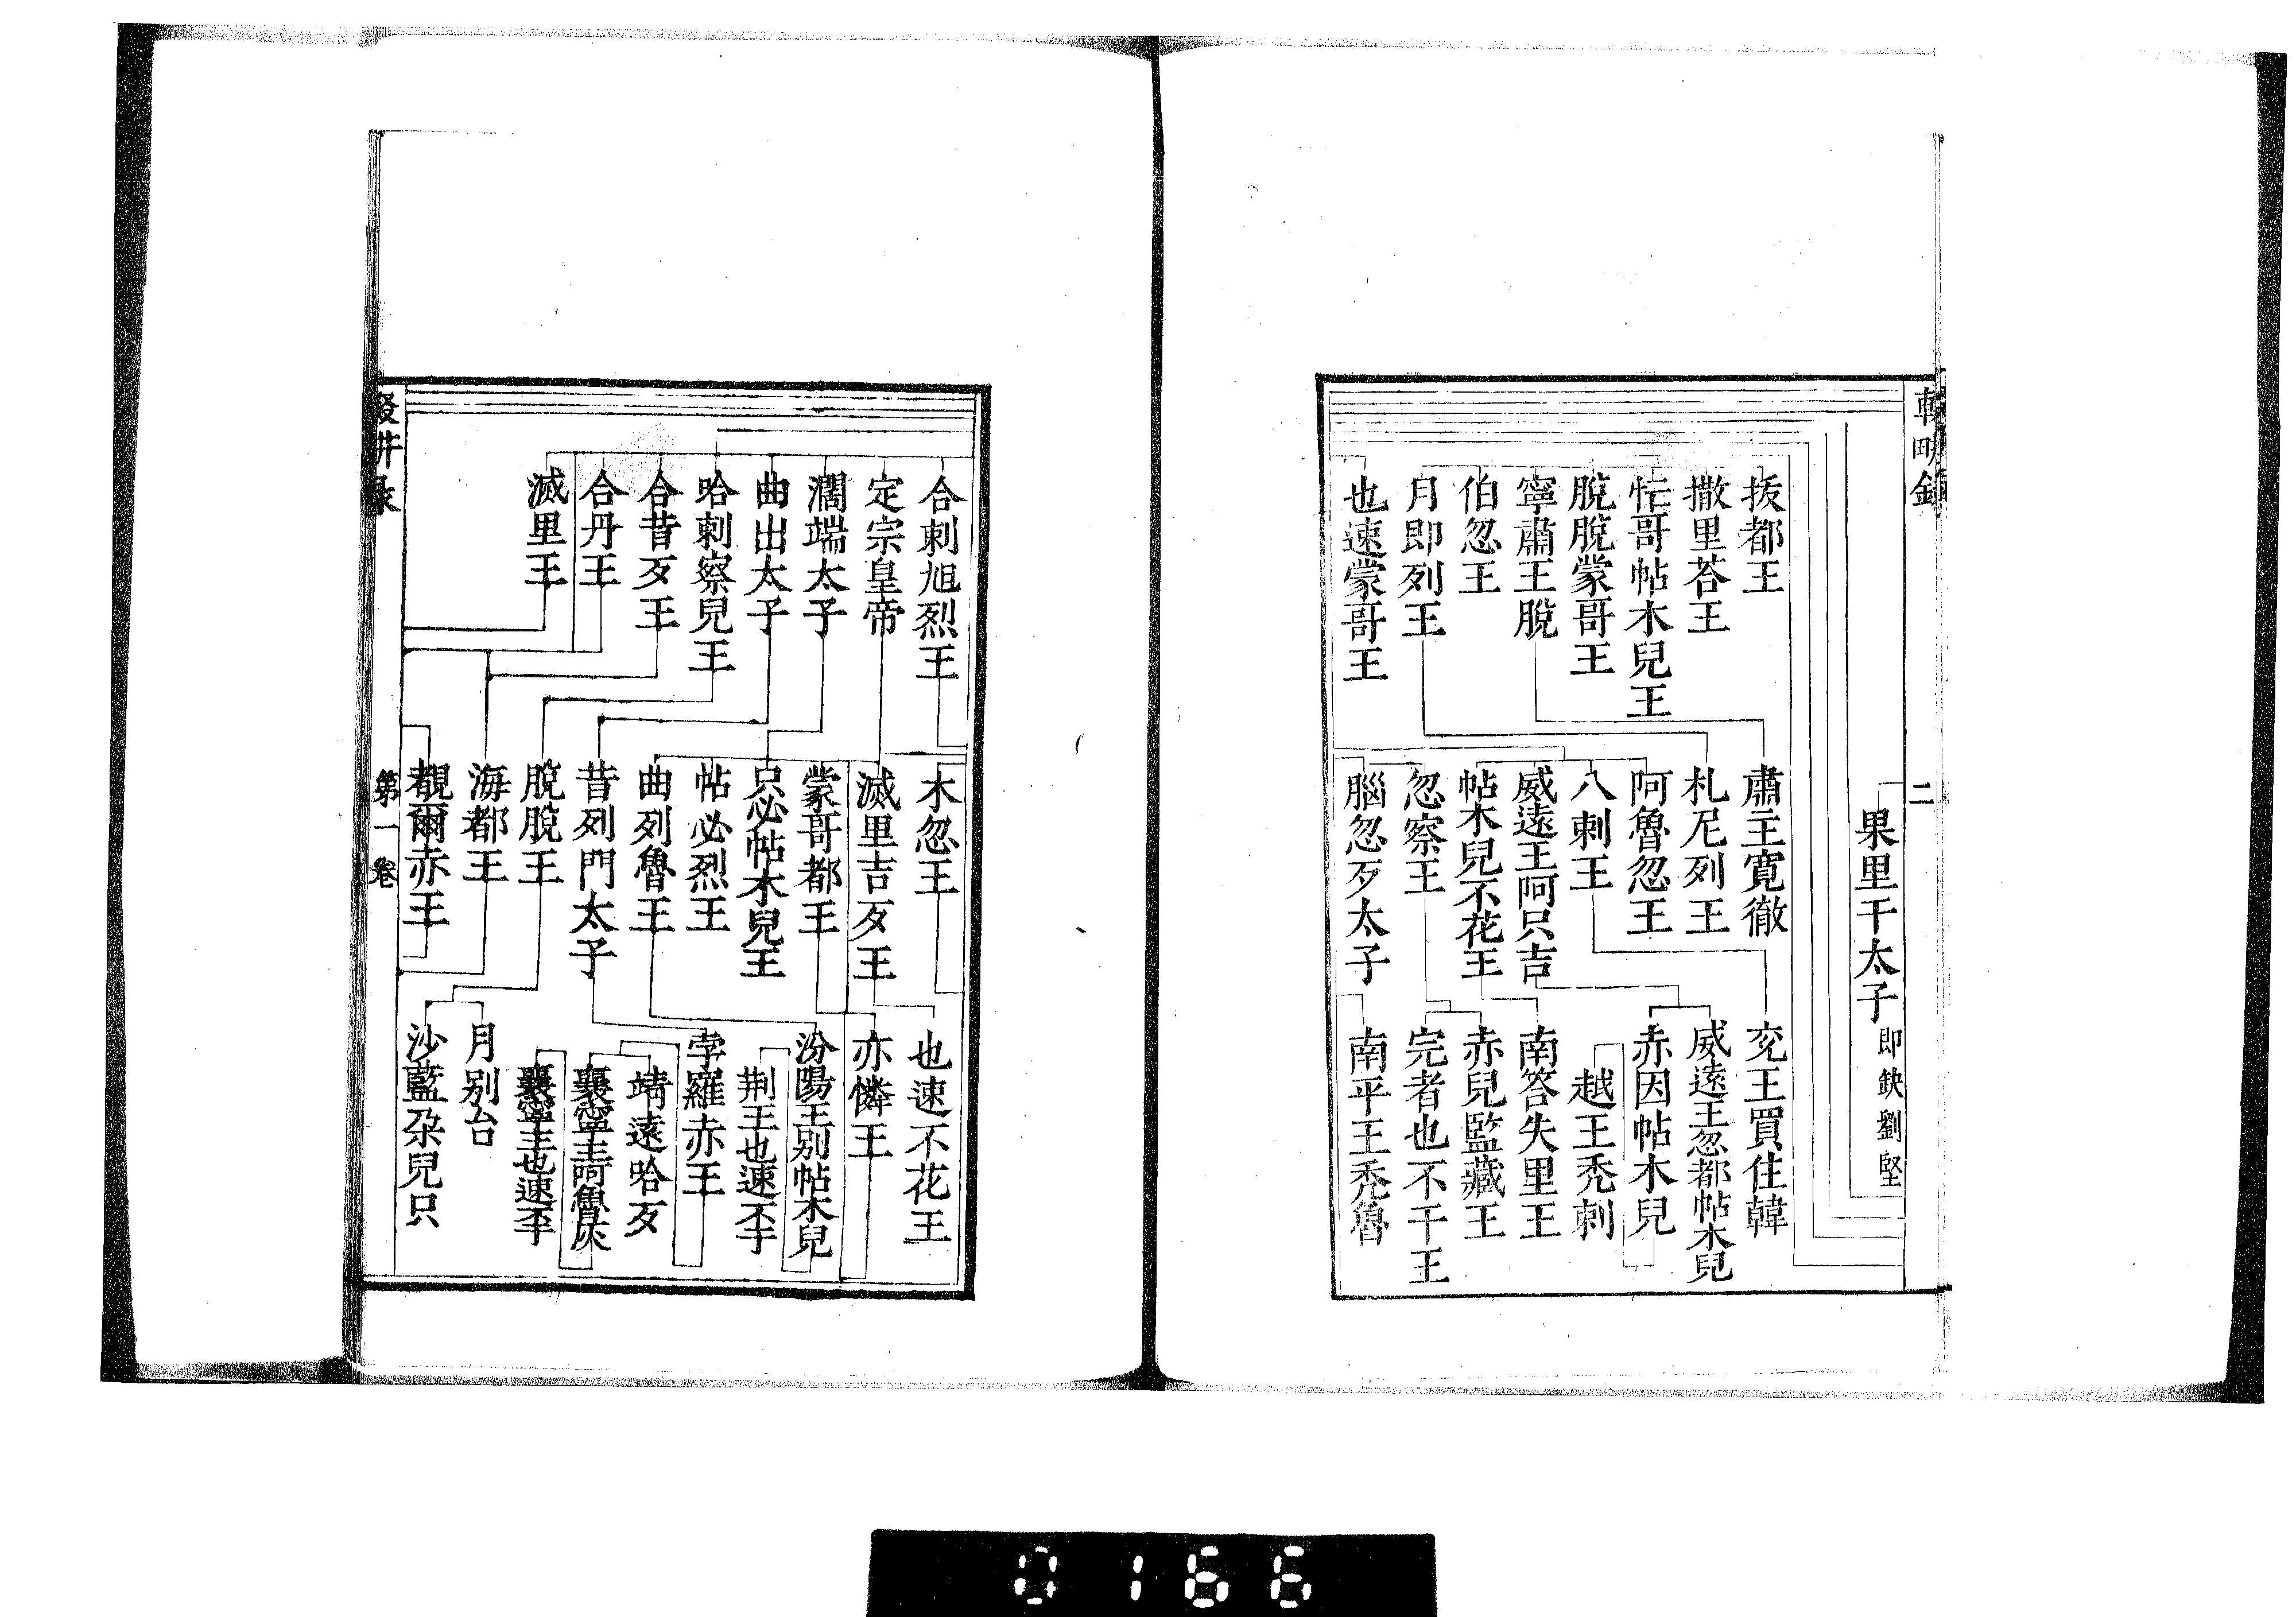 輟畊錄
二
果里干太子即鈌劉堅
拔都王
撒里荅王
忙哥帖木兒王
脫脫蒙哥王
寧肅王脫
伯忽王
月即列王
也速蒙哥王
肅王寛徹
札尼列王
阿魯忽王
八剌王
威遠王阿只吉
帖木兒不花王
忽察王
腦忽歹太子
兗王買住韓
威遠王忽都帖木兒
赤因帖木兒
越王禿剌
南答失里王
赤兒監藏王
完者也不干王
南平王禿魯
合剌旭烈王
定宗皇帝
濶端太子
曲出太子
哈剌察兒王
合昔歹王
合丹王
滅里王
木忽王
滅里吉歹王
蒙哥都王
只必帖木兒王
帖必烈王
曲列魯王
昔列門太子
脫脫王
海都王
覩爾赤王
也速不花王
亦憐王
汾陽王別帖木兒
荆王也速不干
孛羅赤王
靖遠哈歹
襄寧王也速不干
月別台
沙藍朶兒只
輟畊录
第一卷